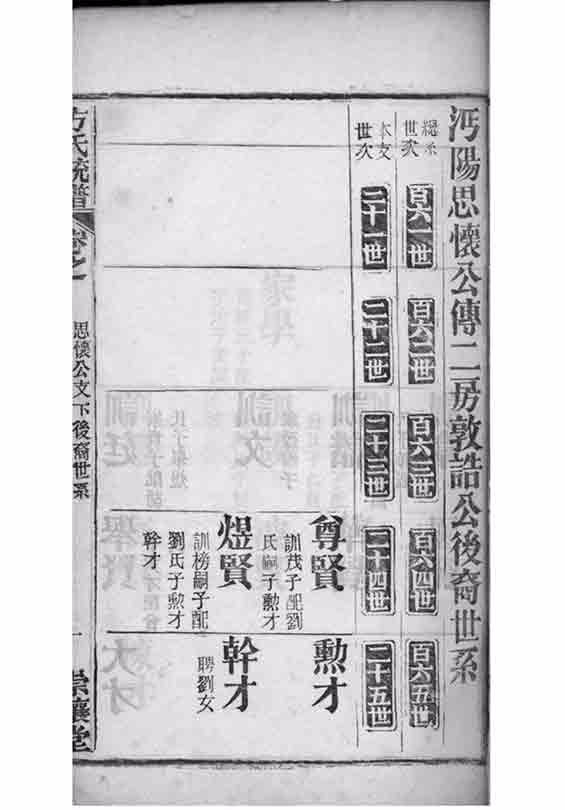 沔陽思懷公傳二房敦誥公後裔世系
總系世次
百六一世
百六二世
百六三世
百六四世
百六五世
本支世次
二十一世
二十二世
二十三世
二十四世
二十五世
尊賢
訓茂子配劉
氏嗣子勲才
勲才
煜賢
訓榜嗣子配
劉氏子勲才
幹才
幹才
聘劉女
方氏統譜
卷之一
思懷公支下後裔世系
一
崇讓堂